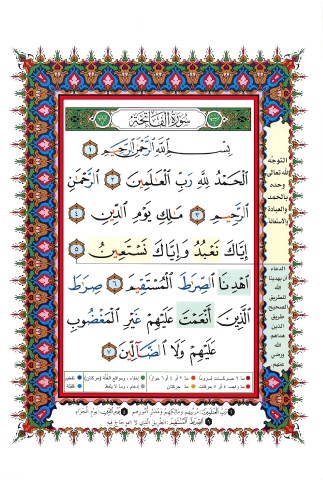 سُورَةُ الفَاتِحَةِ
بِسْمِ ٱللَّهِ ٱلرَّحْمَٰنِ ٱلرَّحِيمِ ١
ٱلْحَمْدُ لِلَّهِ رَبِّ ٱلْعَٰلَمِينَ ٢ ٱلرَّحْمَٰنِ
ٱلرَّحِيمِ ٣ مَٰلِكِ يَوْمِ ٱلدِّينِ ٤
إِيَّاكَ نَعْبُدُ وَإِيَّاكَ نَسْتَعِينُ ٥
ٱهْدِنَا ٱلصِّرَٰطَ ٱلْمُسْتَقِيمَ ٦ صِرَٰطَ
ٱلَّذِينَ أَنْعَمْتَ عَلَيْهِمْ غَيْرِ ٱلْمَغْضُوبِ
عَلَيْهِمْ وَلَا ٱلضَّآلِّينَ ٧
التوجّه
لله تعالى
وحده
بالحمد
والعبادة
والاستعانة
الدعاء
أن يهدينا
الله
للطريق
الصحيح
طريق
الذين
هداهم
الله
ورضي
عنهم